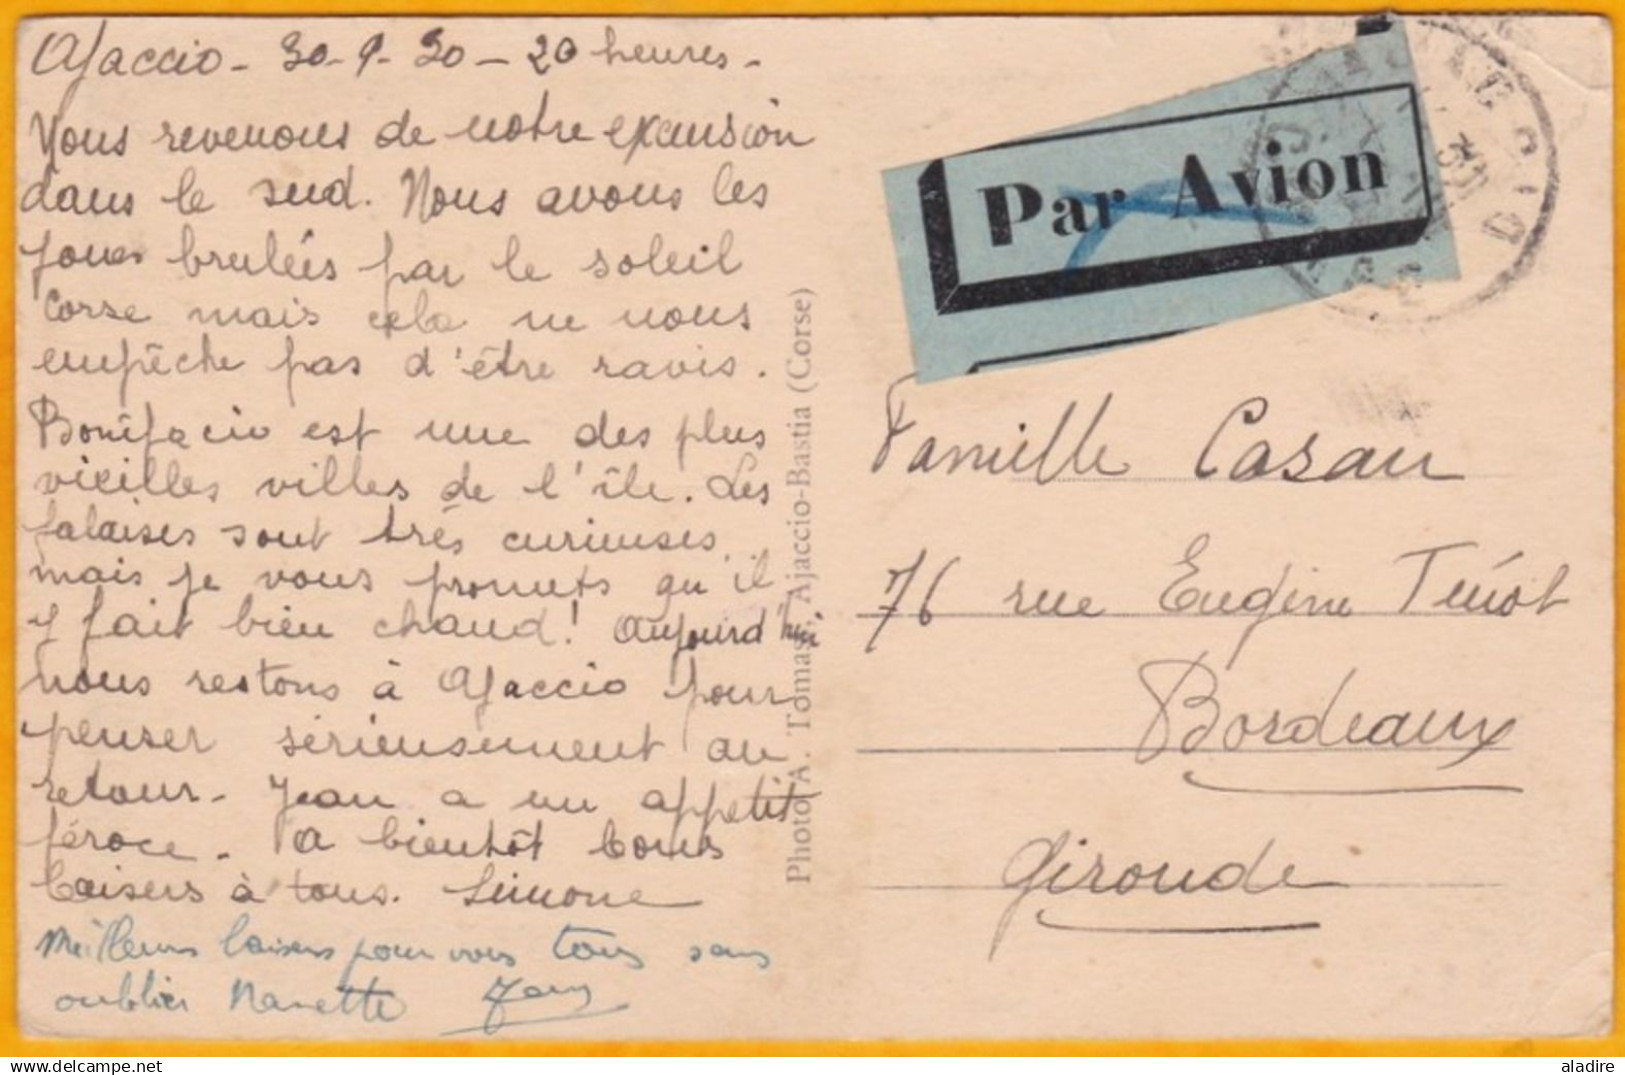 Ajaccio - 30-9-30 - 20 heures -
Nous revenons de notre excursion
dans le sud. Nous avons les
joues brulées par le soleil
Corse mais cela ne nous
empêche pas d'être ravis.
Bonifacio est une des plus
vieilles villes de l'île. Les
falaises sont très curieuses,
mais je vous promets qu'il
y fait bien chaud! Aujourd'hui
nous restons à Ajaccio pour
penser sérieusement au
retour - Jean a un appetit
féroce - A bientôt bons
baisers à tous. Simone
Meilleurs baisers pour vous tous sans
oublier Nanette Jean
Photo A. Tomasi, Ajaccio-Bastia (Corse)
Par Avion
Famille Casau
76 rue Eugène Ténot
Bordeaux
Gironde
aladire